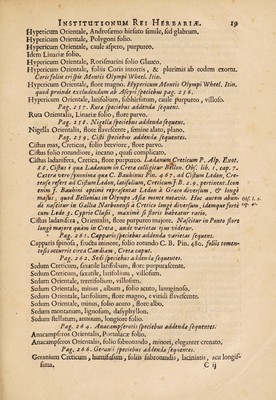 INSTITUTIONUM REI HERBARIÆ. 19
Hypericum Orientale, Androsæmo hirsuto simile, sed glabrum.
Hypericum Orientale, Polygoni folio.
Hypericum Orientale, caule aspero, purpureo.
Idem Linariæ folio.
Hypericum Orientale, Rorismarini folio Glauco.
Hypericum Orientale, foliis Coris intortis, & plurimis ab eodem exortu.
Coris foliis crispis Montis Olympi Wheel. Itin.
Hypericum Orientale, flore magno. Hypericum Montis Olympi Wheel. Itin.
quod proinde excludendum ab Ascyri speciebus pag. 256.
Hypericum Orientale, latifolium, subhirsutum, caule purpureo, villoso.
Pag. 257. Ruta speciebus addenda sequens.
Ruta Orientalis, Linariæ folio, flore parvo.
Pag. 258. Nigella speciebus addenda sequens.
Nigella Orientalis, flore flavescente, semine alato, plano.
Pag. 259. Cisti speciebus addenda sequentes.
Cistus mas, Creticus, folio breviore, flore parvo.
Cistus folio rotundiore, incano, quasi complicato.
Cistus ladanifera, Cretica, flore purpureo. Ladanum Creticum P. Alp. Exot.
88. Cistus è qua Ladanum in Creta colligitur Bellon. Obs. lib. 1. cap. 7.
Cæterum vero synonima quæ C. Bauhinus Pin. 467. ad Cistum Ledon, Cretense
refert ad Cistum Ledon, latifolium, Creticum J. B. 2. 9. pertinent. Iconem
J. Bauhini optimè repræsentat Ledon à Græco diversum, & longè
majus, quod Bellonius in Olympo Asiæ monte notavit. Hoc autem abundè
nascitur in Gallia Narbonensi à Cretico longè diversum, idemque forte
cum Ledo 3. Cyprio Clusii, maximè si floris habeatur ratio.
Cistus ladanifera, Orientalis, flore purpureo majore. Nascitur in Ponto flore
longè majore quàm in Creta, unde varietas ejus videtur.
Pag. 261. Capparis speciebus addenda varietas sequens.
Capparis spinosa, fructu minore, folio rotundo C. B. Pin. 480. foliis tomentosis
occurrit circa Candiam, Creta caput.
Pag. 262. Sedi speciebus addenda sequentes.
Sedum Creticum, saxatile latifolium, flore purpurascente.
Sedum Creticum, saxatile, latifolium, villosum.
Sedum Orientale, tenuifolium, villosum.
Sedum Orientale, minus, album, folio acuto, lanuginoso.
Sedum Orientale, latifolium, flore magno, è viridi flavescente.
Sedum Orientale, minus, folio acuto, flore albo.
Sedum montanum, lignosum, dasyphyllon.
Sedum stellatum, annuum, longiore folio.
Pag. 264. Anacampserotis speciebus addenda sequentes.
Anacampseros Orientalis, Portulacæ folio.
Anacampseros Orientalis, folio subrotundo, minori, eleganter crenato.
Pag. 266. Geranii speciebus addenda sequentes.
Geranium Creticum, humifusum, foliis subrotundis, laciniatis, acu longissima.
C ij